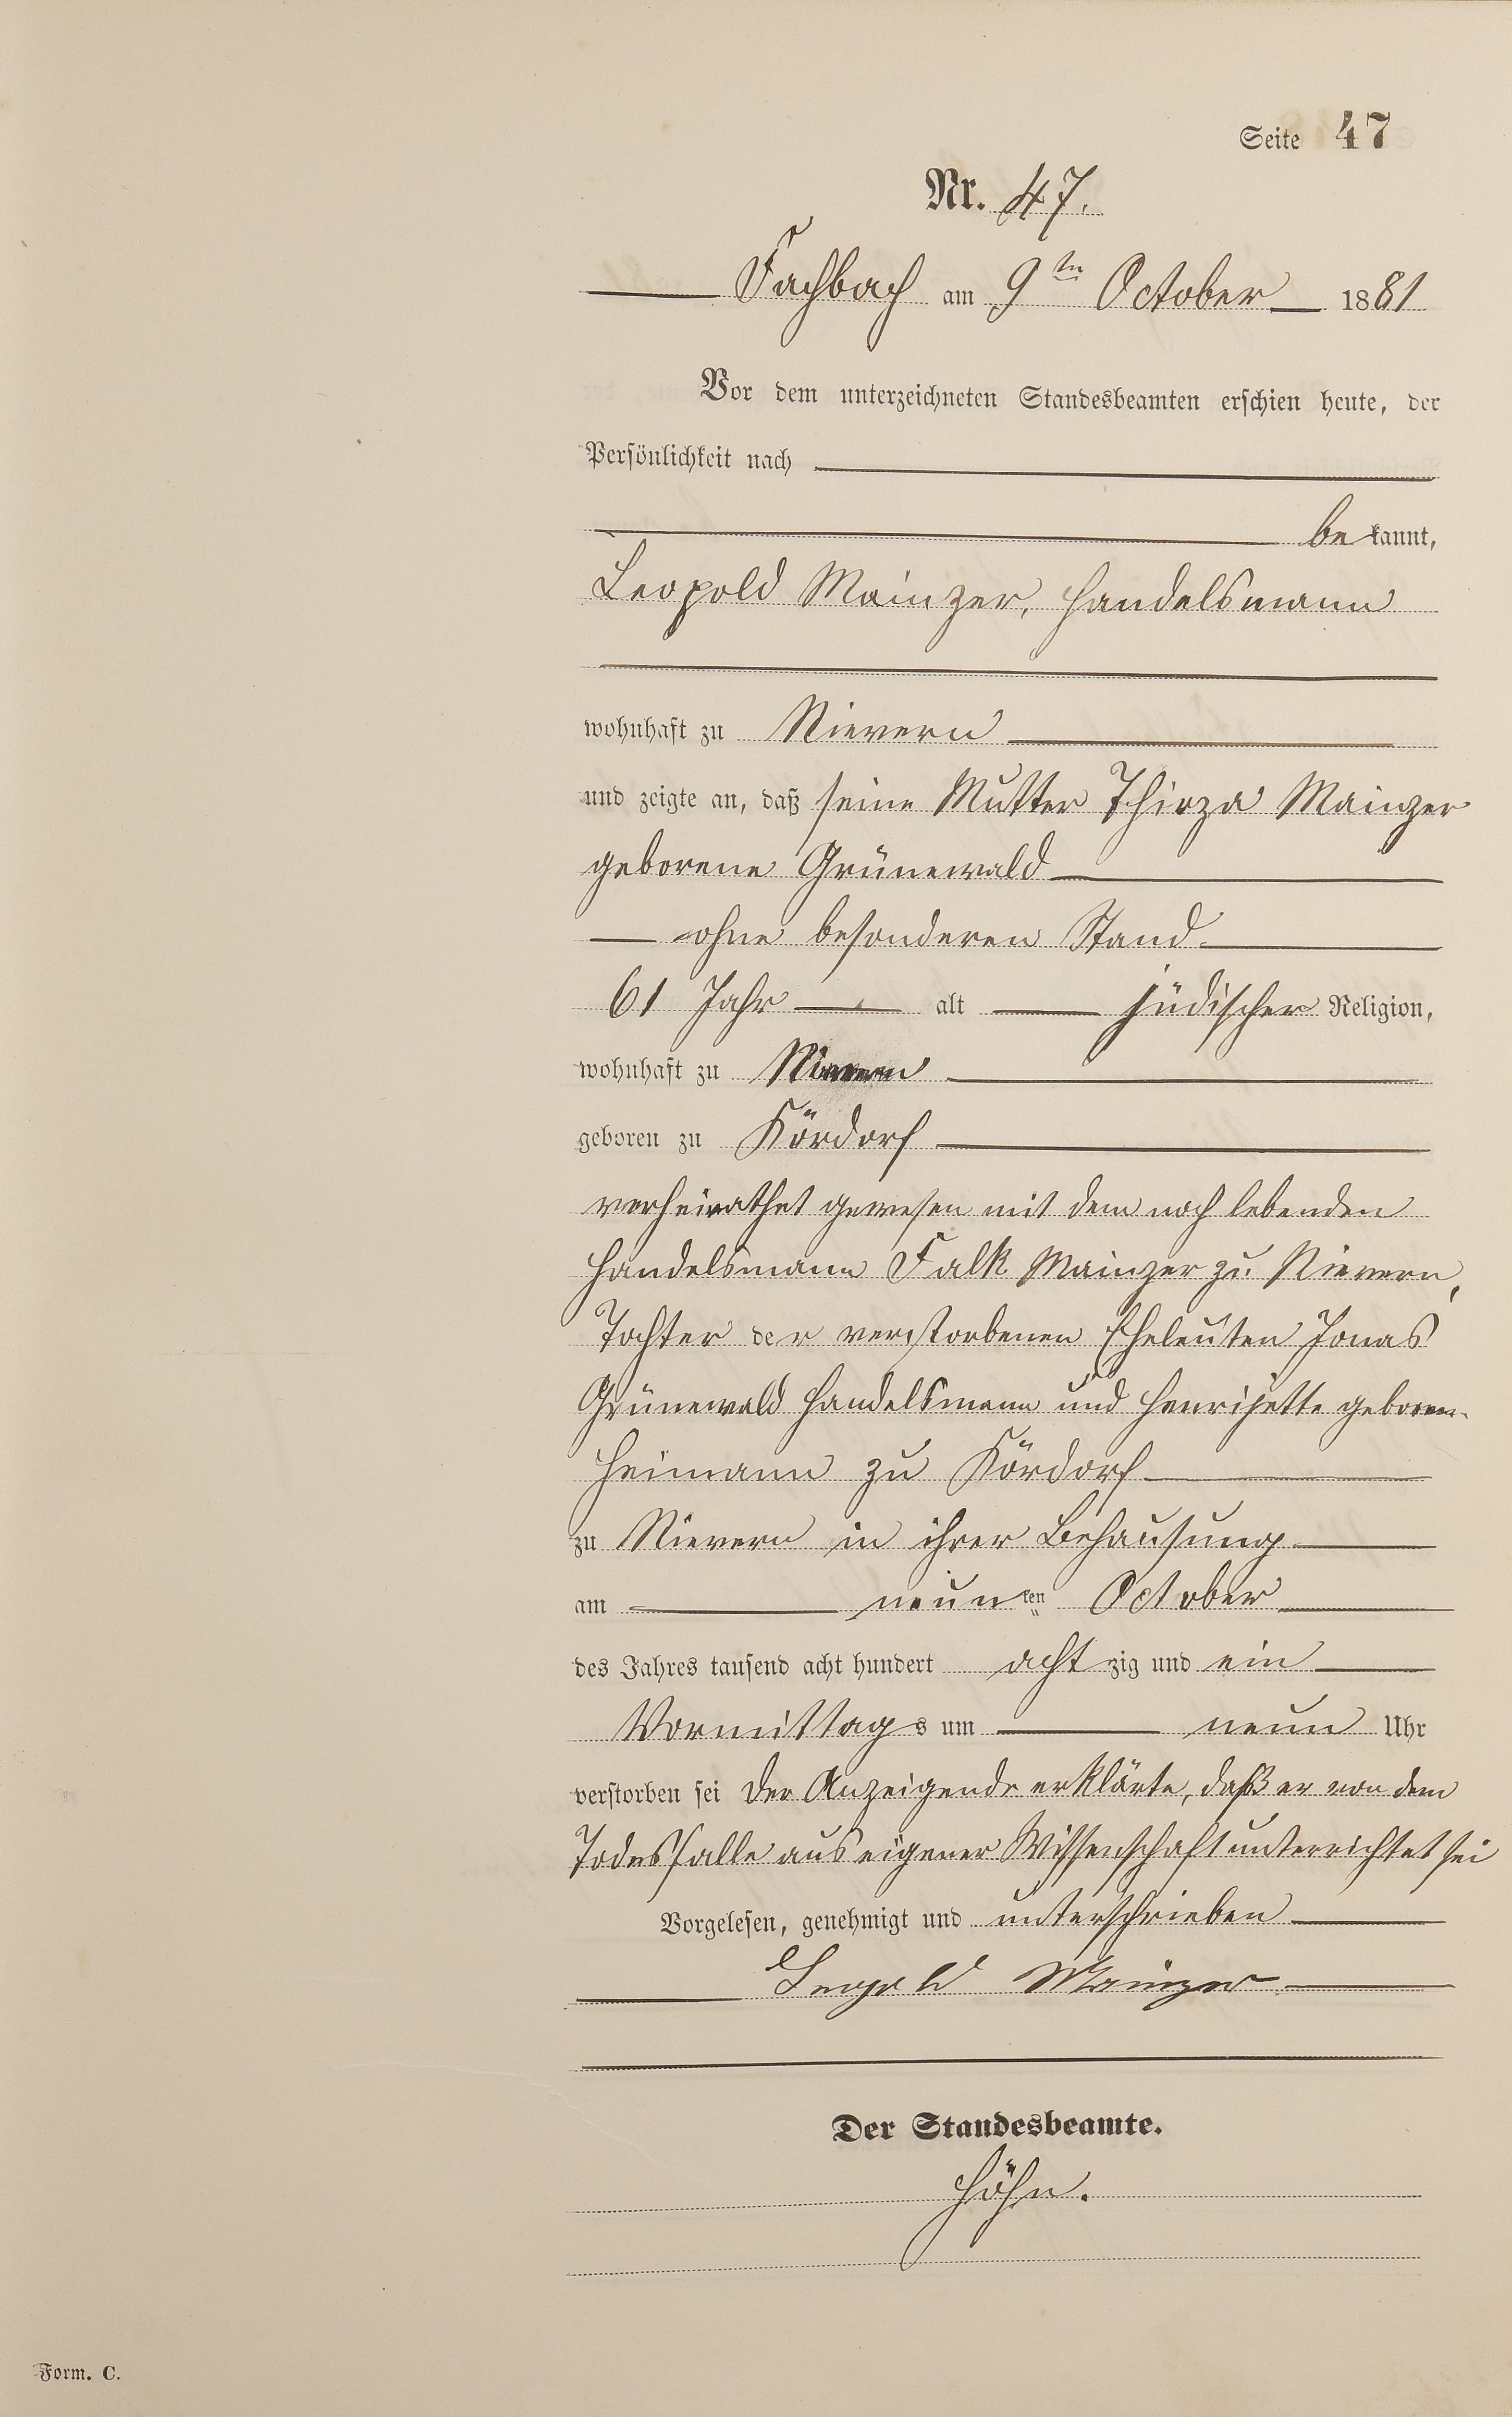 Seite 47
Nr. 47.
Fachbach am 9ten October 1881
Vor dem unterzeichneten Standesbeamten erschien heute, der
Persönlichkeit nach
be kannt,
Leopold Mainzer, Handelsmann
wohnhaft zu Nievern
und zeigte an, daß seine Mutter Thirza Mainzer
geborene Grünewald
ohne besonderen Stand
61 Jahr alt jüdischer Religion,
wohnhaft zu Nievern
geboren zu Kördorf
verheirathet gewesen mit dem noch lebenden
Handelsmann Falk Mainzer zu Nievern,
Tochter der verstorbenen Eheleuten Jonas
Grünewald Handelsmann und Henrijette geboren
Heimann zu Kördorf
zu Nievern in ihrer Behausung
am neunten October
des Jahres tausend acht hundert achtzig und ein
Vormittags um neun Uhr
verstorben sei Der Anzeigende erklärte, daß er von dem
Todesfalle aus eigener Wissenschaft unterrichtet sei
Vorgelesen, genehmigt und unterschrieben
Leopold Mainzer
Der Standesbeamte.
Höhn.
Form. C.